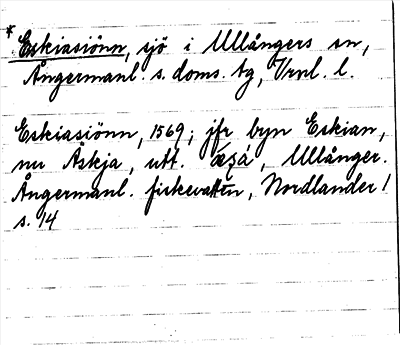 * Eskiasiönn, sjö i Ullångers sn,
Ångermanl. s. doms. tg, Vrnl. l.
Eskiasiönn, 1569; jfr byn Eskian,
nu Äskja, utt. Ullånger.
Ångermanl. fiskevatten, Nordlander 1
s. 14